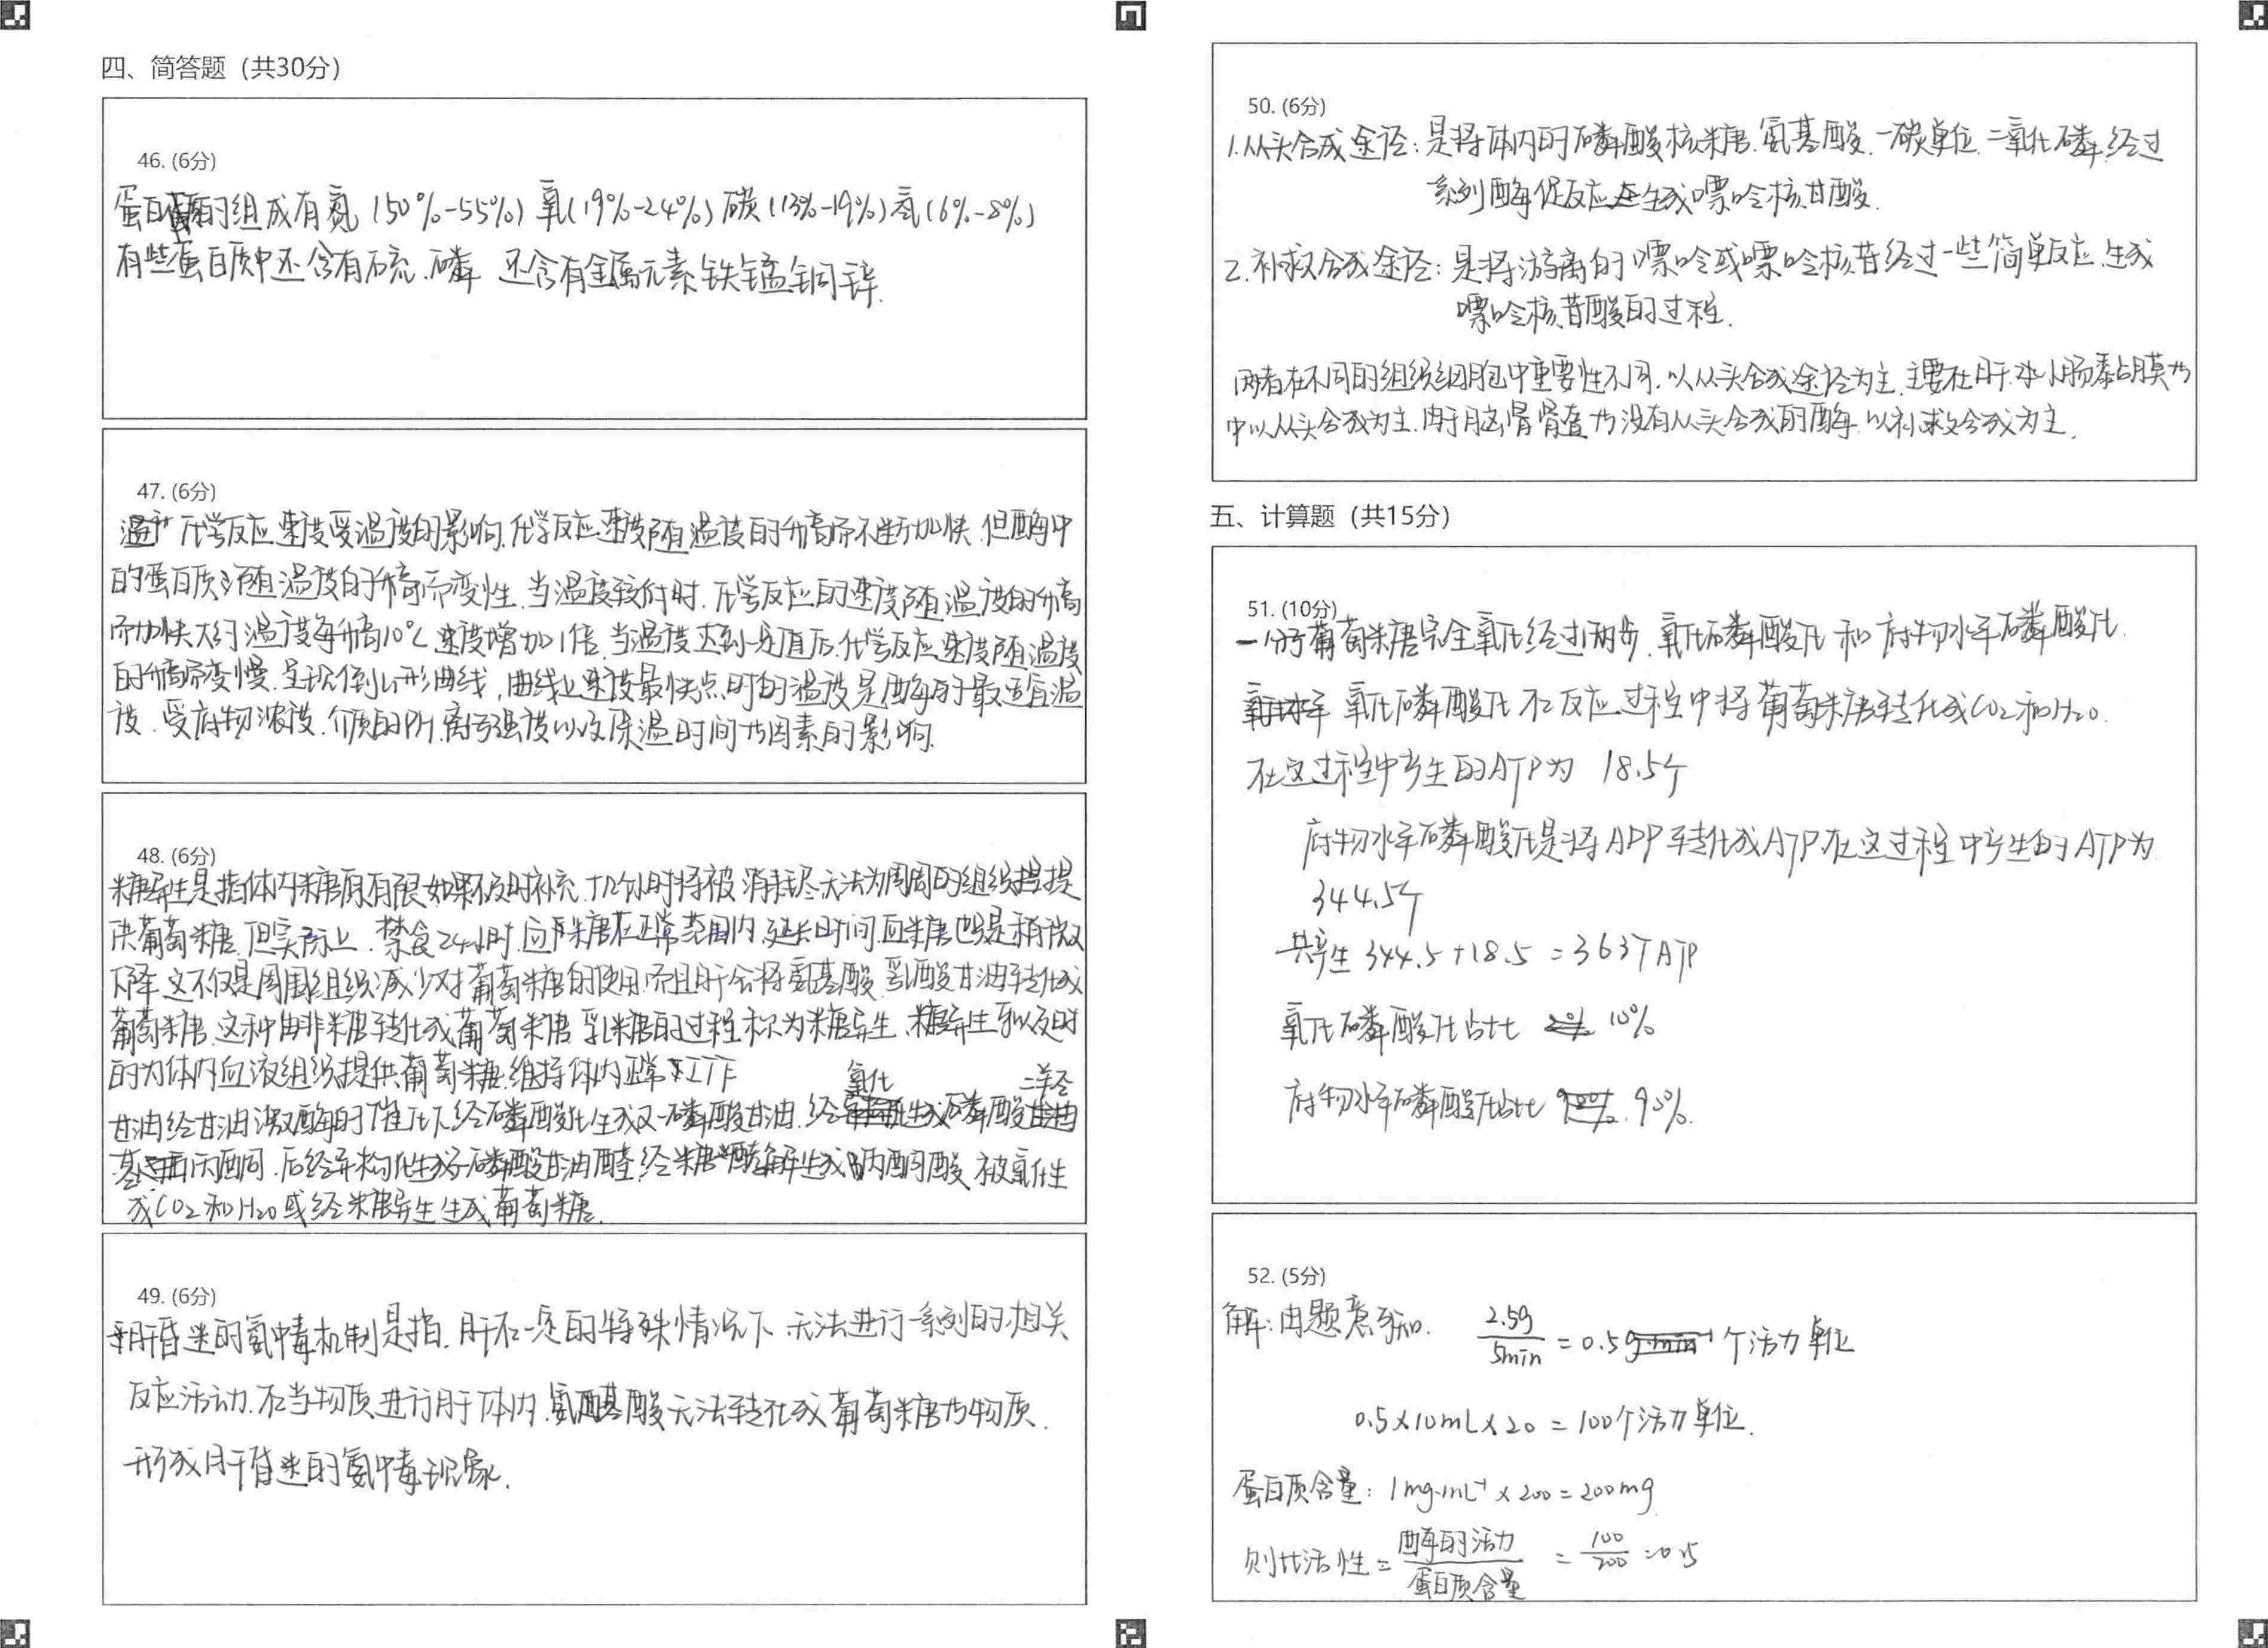 四、简答题（共30分）
46. (6分)
蛋白质的组成有氮（50%-55%）氧（19%-24%）碳（13%-19%）氢（6%-8%）
有些蛋白质中还含有硫、磷 还含有金属元素铁锰铜锌.
47. (6分)
化学反应速度受温度的影响,化学反应速度随温度的升高而不断加快.但酶中
的蛋白质多随温度的升高而变性.当温度较低时.化学反应的速度随温度的升高
而加快大约温度每升高10℃速度增加1倍.当温度达到一定值后.化学反应速度随温度
的升高而变慢.呈现倒U形曲线,曲线上速度最快点时的温度是酶的最适宜温
度.受底物浓度.介质的PH.离子强度以及保温时间等因素的影响.
48. (6分)
糖异生是指体内糖原有限如果不及时补充.十几个小时将被消耗尽无法为周围的组织提
供葡萄糖.但实际上.禁食24小时.血糖在正常范围内,延长时间.血糖也只是稍微
下降.这不仅是周围组织减少对葡萄糖的使用.而且肝会将氨基酸.乳酸甘油转化成
葡萄糖.这种由非糖转化成葡萄糖 乳糖的过程称为糖异生.糖异生可以及时
的为体内血液组织提供葡萄糖.维持体内正常工作
甘油经甘油激酶的催化下经磷酸化生成3-磷酸甘油.经氧化生成磷酸二羟
基丙酮.后经异构化生成3-磷酸甘油醛.经糖酵解生成丙酮酸.被氧化生
成CO2和H2O或经糖异生生成葡萄糖.
49. (6分)
肝昏迷的氨中毒机制是指.肝在一定的特殊情况下.无法进行一系列的相关
反应活动.在当物质进行于体内.氨基酸无法转化成葡萄糖等物质.
形成肝昏迷的氨中毒现象.
50. (6分)
1.从头合成途径:是将体内的磷酸核糖.氨基酸.一碳单位.二氧化磷.经过
系列酶促反应生成嘌呤核甘酸.
2.补救合成途径:是将游离的嘌呤或嘌呤核苷经过一些简单反应.生成
嘌呤核苷酸的过程.
两者在不同的组织细胞中重要性不同.以从头合成途径为主.主要在肝.小肠黏膜等
中以从头合成为主.由于脑骨髓等没有从头合成的酶.以补救合成为主.
五、计算题（共15分）
51. (10分)
一分子葡萄糖完全氧化经过两步.氧化磷酸化和底物水平磷酸化.
氧化磷酸化在反应过程中将葡萄糖转化成CO2和H2O.
在这过程中产生的ATP为 18.5个
底物水平磷酸化是将ADP转化成ATP.在这过程中产生的ATP为
344.5个
共产生344.5+18.5=363个ATP
氧化磷酸化占比 10%
底物水平磷酸化占比 90%.
52. (5分)
解:由题意可知. 2.5g/5min = 0.5 个活力单位
0.5×10mL×20=100个活力单位.
蛋白质含量: 1mg·mL⁻¹×200=200mg
则比活性=酶的活力/蛋白质含量 = 100/200 =0.5